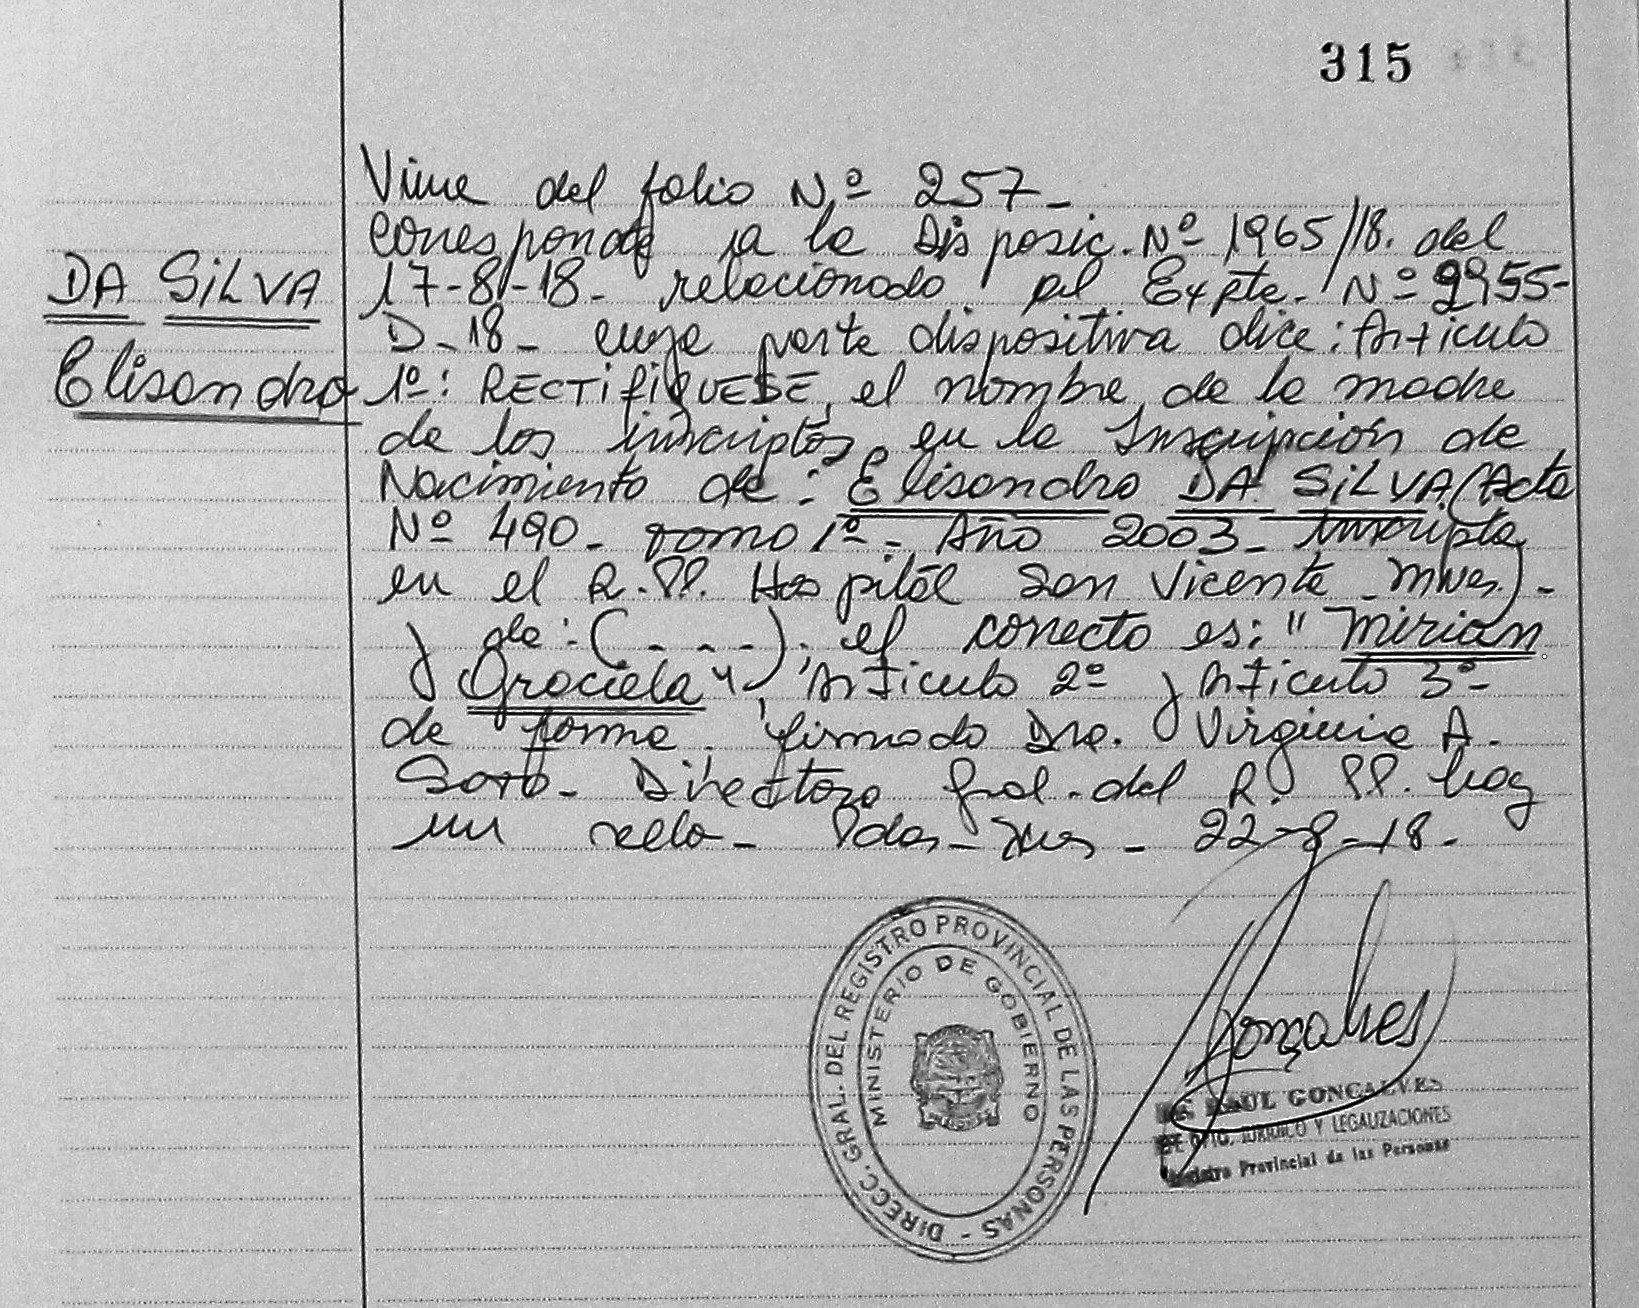 315
Viene del folio Nº 257-
Corresponde a la Disposic. Nº 1965/18. del
DA SILVA
17-8-18- relacionado al Expte. Nº 2955-
D-18- cuya parte dispositiva dice: Artículo
Elisandro
1º: RECTIFIQUESE, el nombre de la madre
de los inscriptos en la Inscripción de
Nacimiento de: Elisandro DA SILVA (Acta
Nº 490- Tomo 1º- Año 2003- Inscripta
en el R.PP. Hospital San Vicente- Mnes)-
y de: (- - -); el correcto es: "Mirian
Graciela", Artículo 2º y Artículo 3º-
de forma. firmado Dra. Virginia A.
Soto- Directora Gral. del R. PP. hay
un sello- Pdas- Mnes- 22-8-18-
DIRECC. GRAL. DEL REGISTRO PROVINCIAL DE LAS PERSONAS -
MINISTERIO DE GOBIERNO
Gonçalves
RAUL GONCALVES
DPTO. JURIDICO Y LEGALIZACIONES
Registro Provincial de las Personas